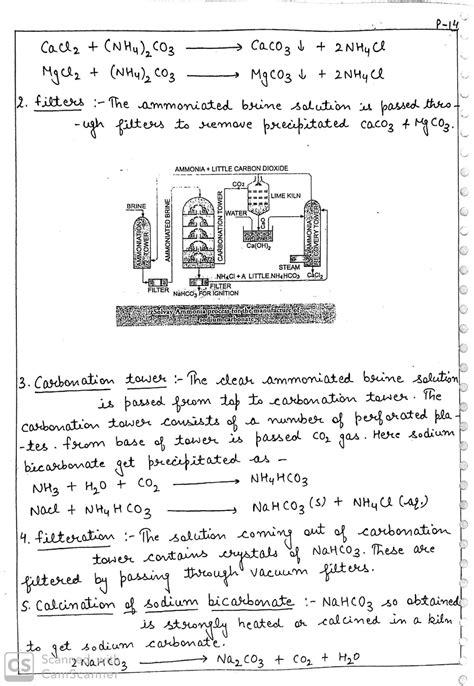 P-14
CaCl2 + (NH4)2CO3 ⟶ CaCO3 ↓ + 2NH4Cl
MgCl2 + (NH4)2CO3 ⟶ MgCO3 ↓ + 2NH4Cl
2. filters :- The ammoniated brine solution is passed thro-
-ugh filters to remove precipitated CaCO3 & MgCO3.
AMMONIA + LITTLE CARBON DIOXIDE
CO2
LIME KILN
BRINE
WATER
AMMONIATION TOWER
AMMONIATED BRINE
CARBONATION TOWER
CaO
Ca(OH)2
AMMONIA RECOVERY TOWER
STEAM
CaCl2
NH4Cl + A LITTLE NH4HCO3
FILTER
FILTER
NaHCO3 FOR IGNITION
Solvay Ammonia process for the manufacture of
sodium carbonate
3. Carbonation tower :- The clear ammoniated brine solution
is passed from top to carbonation tower. The
carbonation tower consists of a number of perforated pla-
-tes. from base of tower is passed CO2 gas. Here sodium
bicarbonate get precipitated as -
NH3 + H2O + CO2 ⟶ NH4HCO3
NaCl + NH4HCO3 ⟶ NaHCO3 (s) + NH4Cl (aq.)
4. filteration :- The solution coming out of carbonation
tower contains crystals of NaHCO3. These are
filtered by passing through vacuum filters.
5. Calcination of sodium bicarbonate :- NaHCO3 so obtained
is strongly heated or calcined in a kiln
to get sodium carbonate.
2NaHCO3 ⟶ Na2CO3 + CO2 + H2O
CS Scanned with
CamScanner